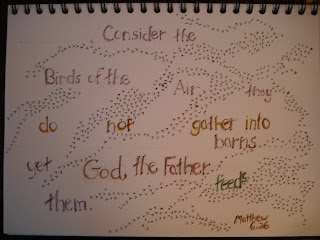 Consider the
Birds of the Air they
do not gather into
barns
yet God, the Father feeds
them.
Matthew
6:26